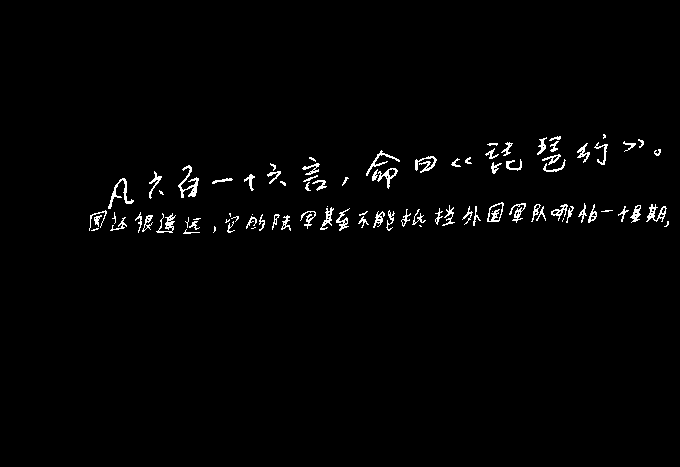 凡六百一十六言，命曰《琵琶行》。
国还很遥远，它的陆军甚至不能抵挡外国军队哪怕一个星期，